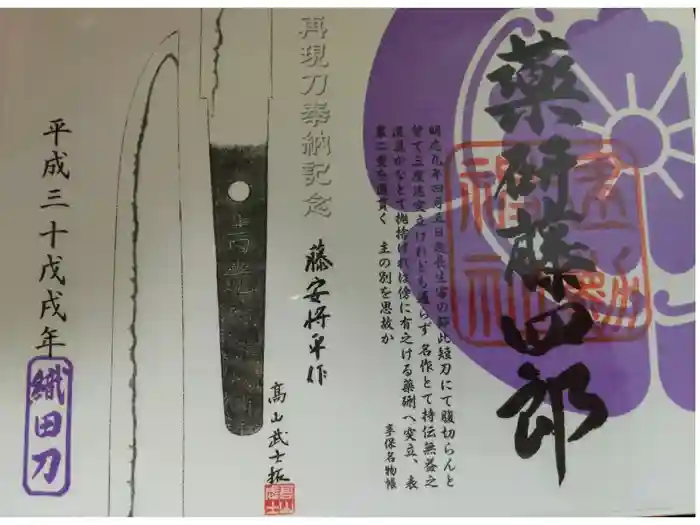 薬研藤四郎
明応九年四月五日政長生害の節此短刀にて腹切らんと
皆て三度迄突立けれども通らず 名作とて持伝無益之
道具かなとて抛捨ければ傍に有之ける薬研へ突立、表
裏二重を通貫く 主の別を思故か
享保名物帳
再現刀奉納記念
藤安将平作
高山武士拓
平成三十戊戌年
織田刀